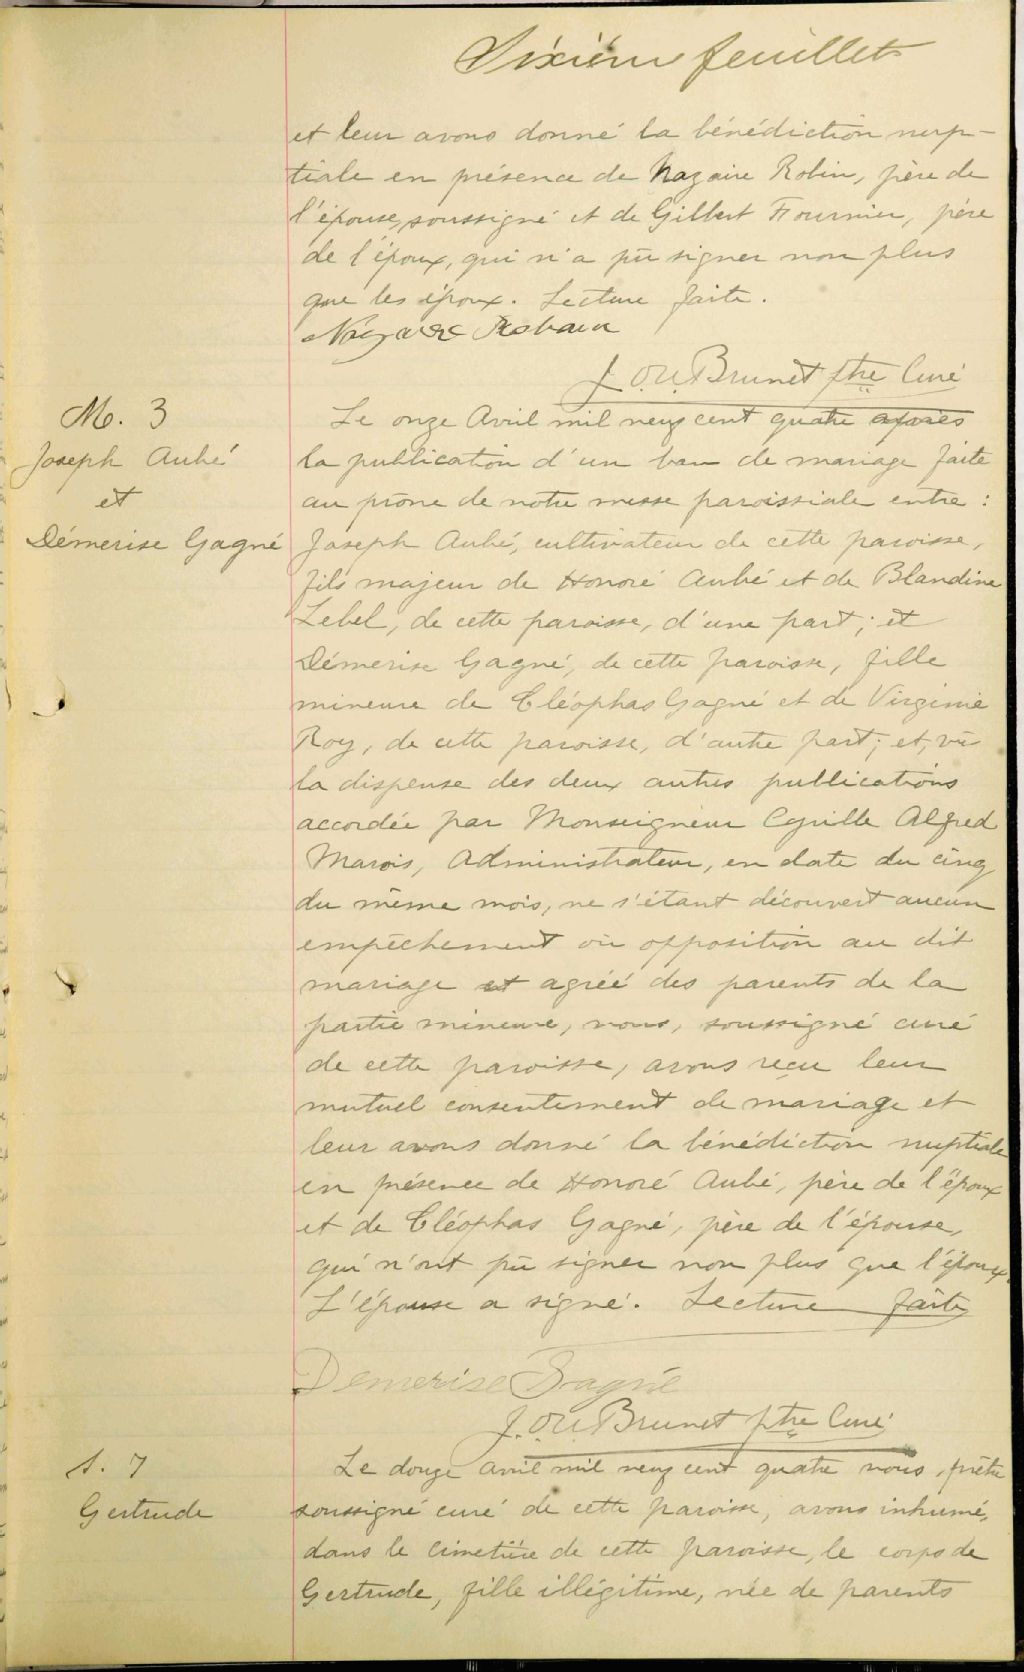 Sixième feuillet
et leur avons donné la bénédiction nup-
tiale en présence de Nazaire Robin, père de
l'épouse, soussigné et de Gilbert Fournier, père
de l'époux, qui n'a pû signer non plus
que les époux. Lecture faite.
Nazaire
J. O. U. Brunet ptre Curé
M. 3
Joseph Aubé
et
Démerise Gagné
Le onze Avril mil neuf cent quatre après
la publication d'un ban de mariage faite
au prône de notre messe paroissiale entre :
Joseph Aubé, cultivateur de cette paroisse,
fils majeur de Honoré Aubé et de Blandine
Lebel, de cette paroisse, d'une part ; et
Démerise Gagné, de cette paroisse, fille
mineure de Cléophas Gagné et de Virginie
Roy, de cette paroisse, d'autre part ; et, vû
la dispense des deux autres publications
accordée par Monseigneur Cyrille Alfred
Marois, Administrateur, en date du cinq
du même mois, ne s'étant découvert aucun
empêchement où opposition au dit
mariage et agréé des parents de la
partie mineure, nous, soussigné curé
de cette paroisse, avons reçu leur
mutuel consentement de mariage et
leur avons donné la bénédiction nuptiale
en présence de Honoré Aubé, père de l'époux
et de Cléophas Gagné, père de l'épouse,
qui n'ont pû signer non plus que l'époux.
L'épouse a signé. Lecture faite
Demerise Gagné
J. O. U. Brunet ptre Curé
S. 7
Gertrude
Le douze avril mil neuf cent quatre nous, prêtre
soussigné curé de cette paroisse, avons inhumé,
dans le cimetière de cette paroisse, le corps de
Gertrude, fille illégitime, née de parents